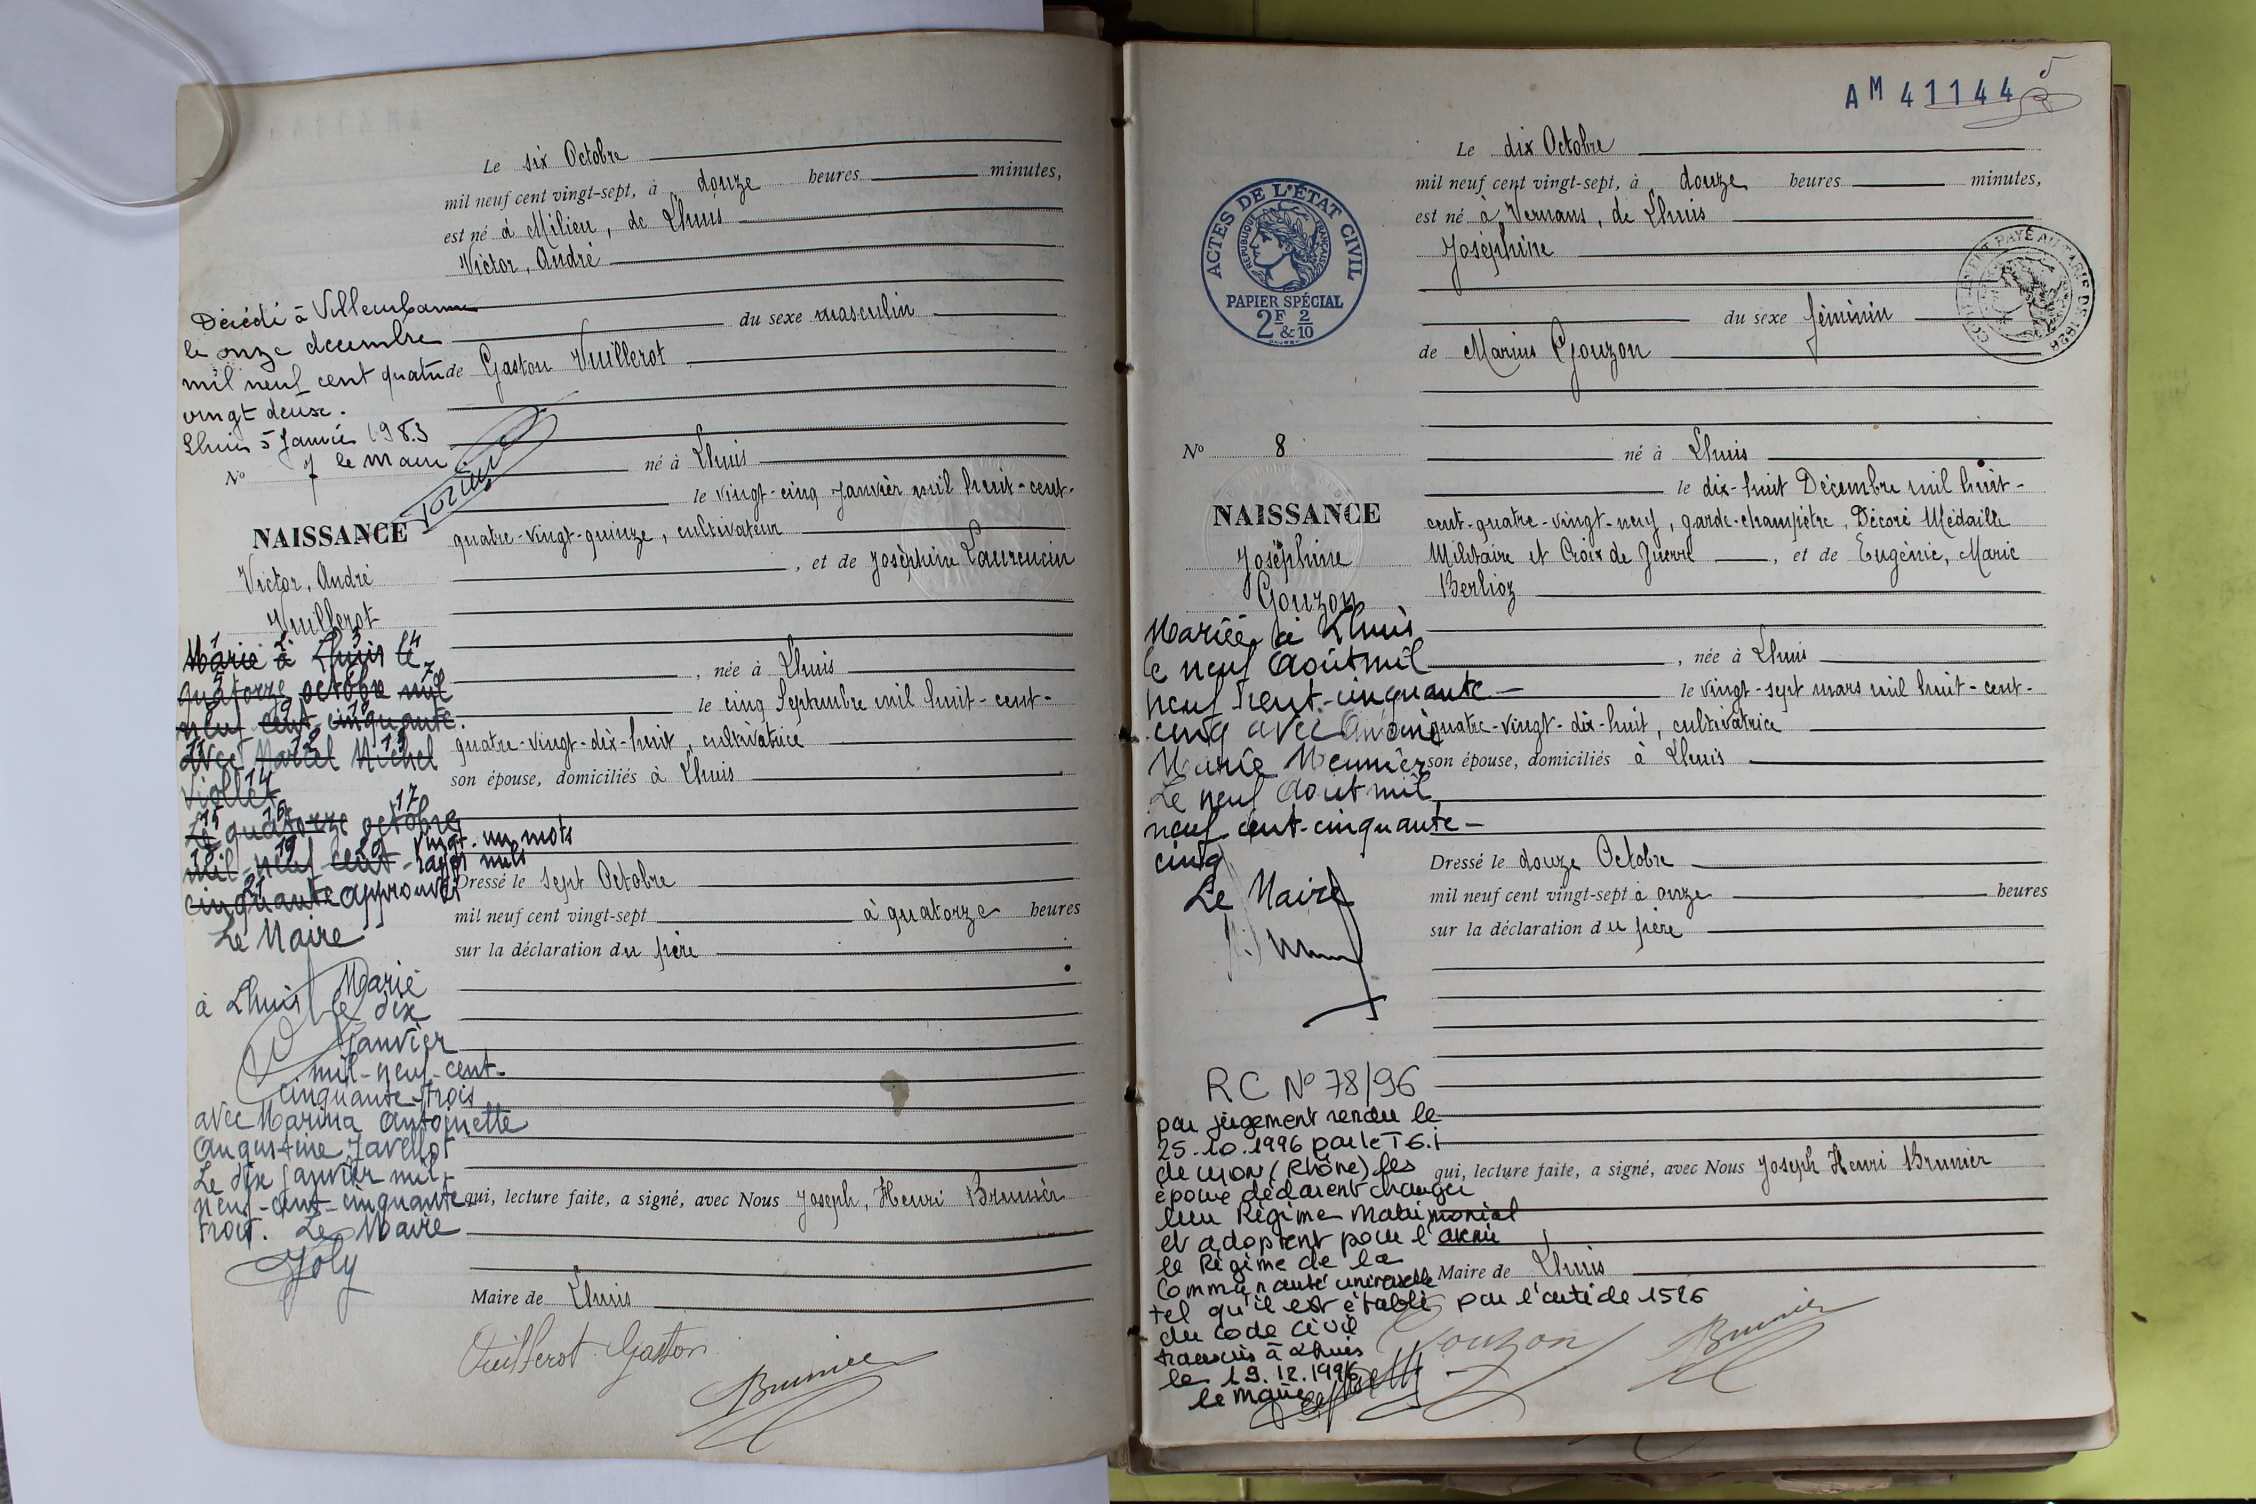 Le six Octobre
mil neuf cent vingt-sept, à douze heures minutes,
est né à Milieu, de Lhuis
Victor, André
du sexe masculin
de Gaston Vuillerot
né à Lhuis
le vingt-cinq Janvier mil huit-cent-
quatre-vingt-quinze, cultivateur
, et de Joséphine Laurencin
, née à Lhuis
le cinq Septembre mil huit-cent-
quatre-vingt-dix-huit, cultivatrice
son épouse, domiciliés à Lhuis
Dressé le sept Octobre
mil neuf cent vingt-sept à quatorze heures
sur la déclaration du père
qui, lecture faite, a signé, avec Nous Joseph, Henri Brunier
Maire de Lhuis
Vuillerot Gaston
Brunier
Décédé à Villeurbanne
le onze decembre
mil neuf cent quatre
vingt deux.
Lhuis 5 Janvier 1983
le Maire
No 7
NAISSANCE
Victor, André
Vuillerot
Marié à Lhuis le
quatorze octobre mil
neuf cent cinquante.
avec Marcel Michel
Viollet
Le quatorze octobre
mil neuf cent
cinquante
vingt-un mots
rayés nuls
approuvés
Le Maire
Marié
à Lhuis le dix
Janvier
mil-neuf-cent-
cinquante-trois
avec Marina Antoinette
Augustine Javellot
Le dix janvier mil
neuf-cent-cinquante
trois. Le Maire
Joly
AM 41144
5
Le dix Octobre
mil neuf cent vingt-sept, à douze heures minutes,
est né à Vernans, de Lhuis
Joséphine
du sexe féminin
de Marius Gouzon
né à Lhuis
le dix-huit Décembre mil huit-
cent-quatre-vingt-neuf, garde-champêtre, Décoré Médaille
Militaire et Croix de Guerre, et de Eugénie, Marie
Berlioz
, née à Lhuis
le vingt-sept mars mil huit-cent-
quatre-vingt-dix-huit, cultivatrice
son épouse, domiciliés à Lhuis
Dressé le douze Octobre
mil neuf cent vingt-sept à onze heures
sur la déclaration du père
qui, lecture faite, a signé, avec Nous Joseph Henri Brunier
Maire de Lhuis
Gouzon
Brunier
ACTES DE L'ÉTAT CIVIL
RÉPUBLIQUE FRANÇAISE
PAPIER SPÉCIAL
2F & 2/10
No 8
NAISSANCE
Joséphine
Gouzon
Mariée à Lhuis
le neuf Août mil
neuf cent-cinquante-
cinq avec Antoine
Marie Meunier
Le neuf Août mil
neuf cent-cinquante-
cinq
Le Maire
RC No 78/96
par jugement rendu le
25.10.1996 par le T G.i
de Lyon (Rhône) les
époux déclarent changer
leur Régime Matrimonial
et adoptent pour l'avenir
le Régime de la
Communauté universelle
tel qu'il est établi par l'article 1526
du code civil
transcris à Lhuis
le 19.12.1996
le Maire